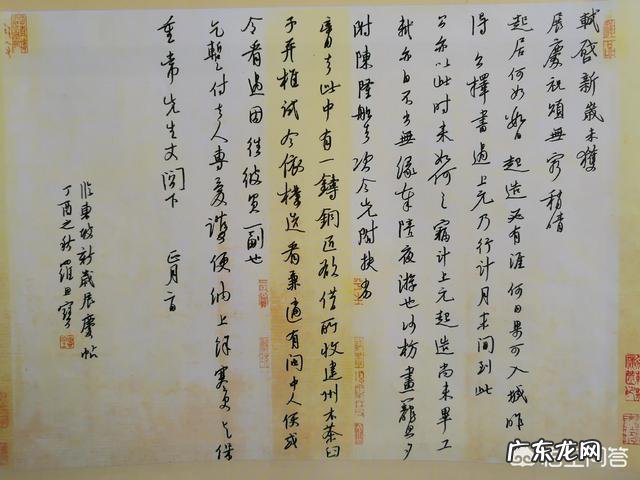 軾啓新歲未獲
展慶祝頌無窮稍晴
起居何如數日起造必有涯何日果可入城昨
得公擇書過上元乃行計月末間到此
公亦以此時來如何々竊計上元起造尚未畢工
軾亦自不出無緣奉陪夜游也沙枋畫籠旦夕
附陳隆船去次今先附扶劣
膏去此中有一鑄銅匠欲借所收建州木茶臼
子并椎試令依樣造看兼適有閩中人便或
令看過因往彼買一副也
乞暫付去人專愛護便納上餘寒更乞保
重常先生丈閣下 正月二日
臨東坡新歲展慶帖
丁酉之秋羅
广东龙网
悟空问答